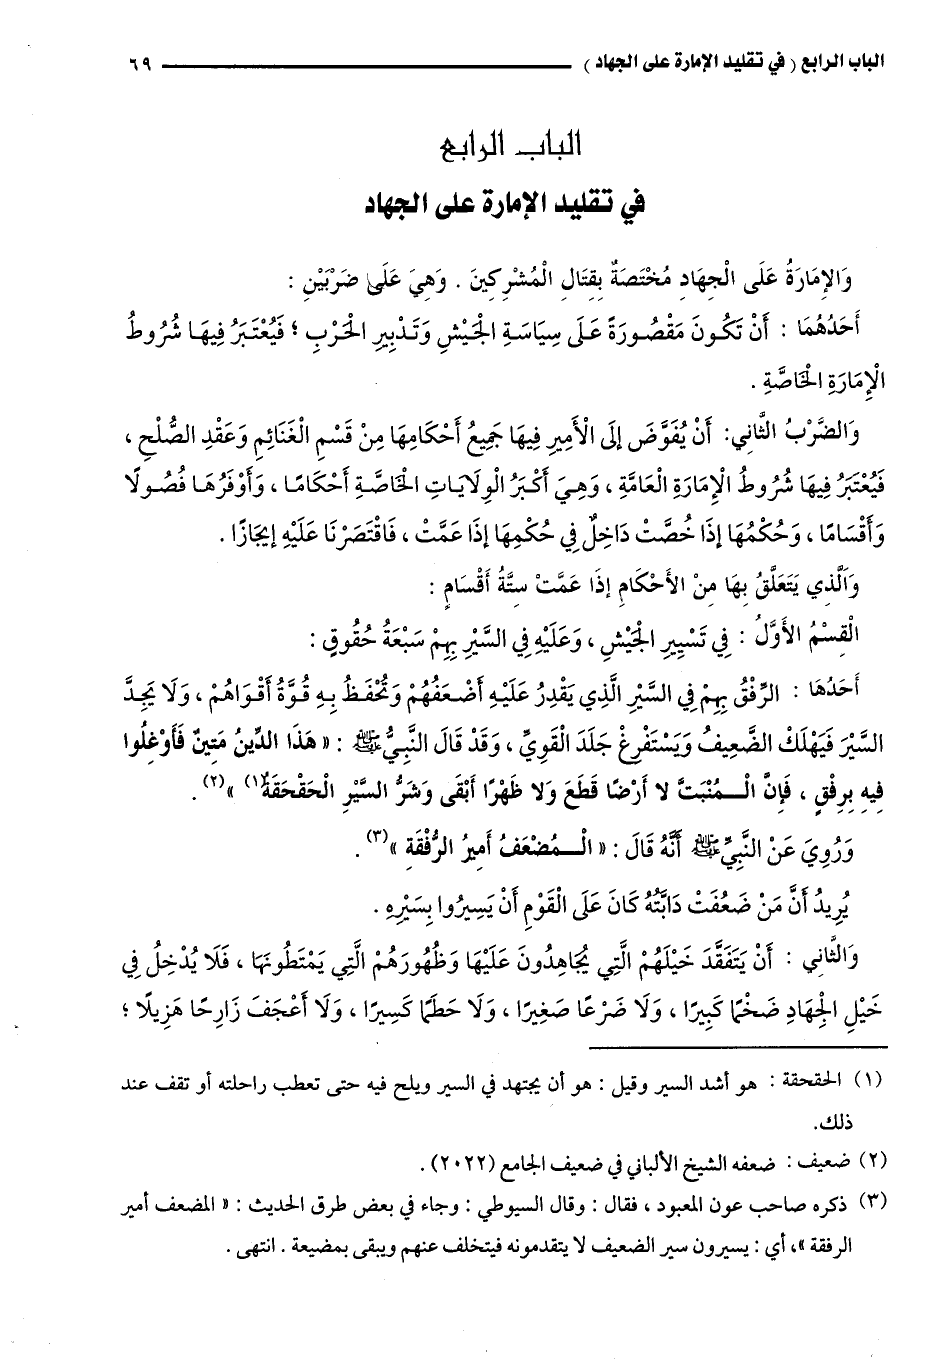 الباب الرابع ( في تقليد الإمارة على الجهاد ) ٦٩
الباب الرابع
في تقليد الإمارة على الجهاد
وَالإِمَارَةُ عَلَى الْجِهَادِ مُخْتَصَةٌ بِقِتَالِ الْمُشْرِكِينَ . وَهِيَ عَلَى ضَرْبَيْنِ :
أَحَدُهُمَا : أَنْ تَكُونَ مَقْصُورَةً عَلَى سِيَاسَةِ الْجَيْشِ وَتَدْبِيرِ الْحَرْبِ ؛ فَيُعْتَبَرُ فِيهَا شُرُوطُ
الْإِمَارَةِ الْخَاصَّةِ .
وَالضَّرْبُ الثَّانِي: أَنْ يُفَوَّضَ إِلَى الْأَمِيرِ فِيهَا جَمِيعُ أَحْكَامِهَا مِنْ قَسْمِ الْغَنَائِمِ وَعَقْدِ الصُّلْحِ ،
فَيُعْتَبَرُ فِيهَا شُرُوطُ الْإِمَارَةِ الْعَامَّةِ ، وَهِيَ أَكْبَرُ الْوِلَايَاتِ الْخَاصَّةِ أَحْكَامًا ، وَأَوْفَرُهَا فُصُولًا
وَأَقْسَامًا ، وَحُكْمُهَا إِذَا خُصَّتْ دَاخِلٌ فِي حُكْمِهَا إِذَا عَمَّتْ ، فَاقْتَصَرْنَا عَلَيْهِ إِيجَازًا .
وَالَّذِي يَتَعَلَّقُ بِهَا مِنْ الْأَحْكَامِ إِذَا عَمَّتْ سِتَّةُ أَقْسَامٍ :
الْقِسْمُ الْأَوَّلُ : فِي تَسْيِيرِ الْجَيْشِ ، وَعَلَيْهِ فِي السَّيْرِ بِهِمْ سَبْعَةُ حُقُوقٍ :
أَحَدُهَا : الرِّفْقُ بِهِمْ فِي السَّيْرِ الَّذِي يَقْدِرُ عَلَيْهِ أَضْعَفُهُمْ وَتُحْفَظُ بِهِ قُوَّةُ أَقْوَاهُمْ ، وَلَا يَجِدَّ
السَّيْرَ فَيَهْلَكَ الضَّعِيفُ وَيَسْتَفْرِغَ جَلَدَ الْقَوِيِّ ، وَقَدْ قَالَ النَّبِيُّ ﷺ : « هَذَا الدِّينُ مَتِينٌ فَأَوْغِلُوا
فِيهِ بِرِفْقٍ ، فَإِنَّ الْـمُنْبَتَّ لَا أَرْضًا قَطَعَ وَلَا ظَهْرًا أَبْقَى وَشَرُّ السَّيْرِ الْحَقْحَقَةُ (١) » (٢) .
وَرُوِيَ عَنْ النَّبِيِّ ﷺ أَنَّهُ قَالَ : « الْـمُضْعَفُ أَمِيرُ الرُّفْقَةِ » (٣) .
يُرِيدُ أَنَّ مَنْ ضَعُفَتْ دَابَّتُهُ كَانَ عَلَى الْقَوْمِ أَنْ يَسِيرُوا بِسَيْرِهِ .
وَالثَّانِي : أَنْ يَتَفَقَّدَ خَيْلَهُمْ الَّتِي يُجَاهِدُونَ عَلَيْهَا وَظُهُورَهُمْ الَّتِي يَمْتَطُونَهَا ، فَلَا يُدْخِلُ فِي
خَيْلِ الْجِهَادِ ضَخْمًا كَبِيرًا ، وَلَا ضَرْعًا صَغِيرًا ، وَلَا حَطَمًا كَسِيرًا ، وَلَا أَعْجَفَ زَارِحًا هَزِيلًا ؛
(١) الحقحقة : هو أشد السير وقيل : هو أن يجتهد في السير ويلح فيه حتى تعطب راحلته أو تقف عند
ذلك.
(٢) ضعيف : ضعفه الشيخ الألباني في ضعيف الجامع (٢٠٢٢) .
(٣) ذكره صاحب عون المعبود ، فقال : وقال السيوطي : وجاء في بعض طرق الحديث : « المضعف أمير
الرفقة »، أي : يسيرون سير الضعيف لا يتقدمونه فيتخلف عنهم ويبقى بمضيعة . انتهى .